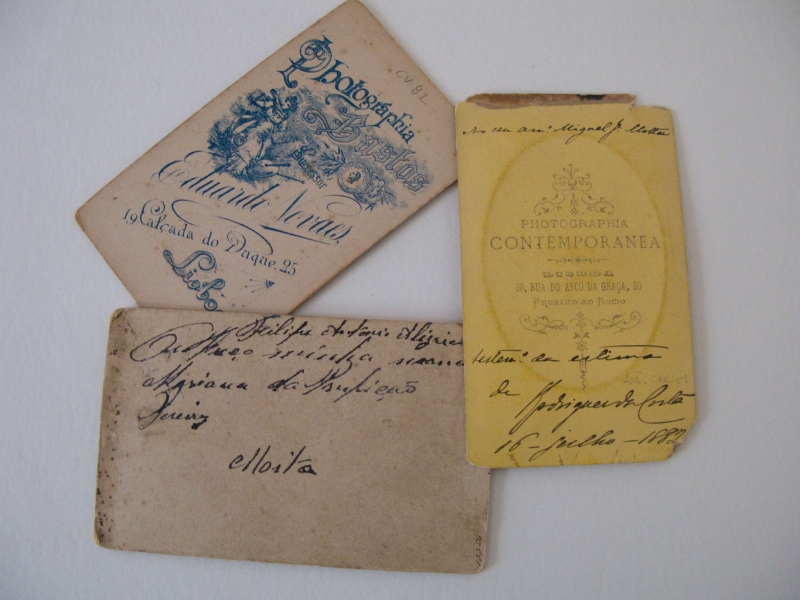 Photographia
Bastos
Successor
Eduardo Novaes,
19 Calçada do Duque, 25
Lisbo
CV 82
Ao seu am.º Miguel J. Motta
PHOTOGRAPHIA
CONTEMPORANEA
LISBOA
30, RUA DO ARCO DA GRAÇA, 30
PROXIMO AO ROCIO
testem.º da estima
de Rodrigues da Costa
16-julho-1882
Filipe Antonio
Offreço minha mana
Marianna da
Moita